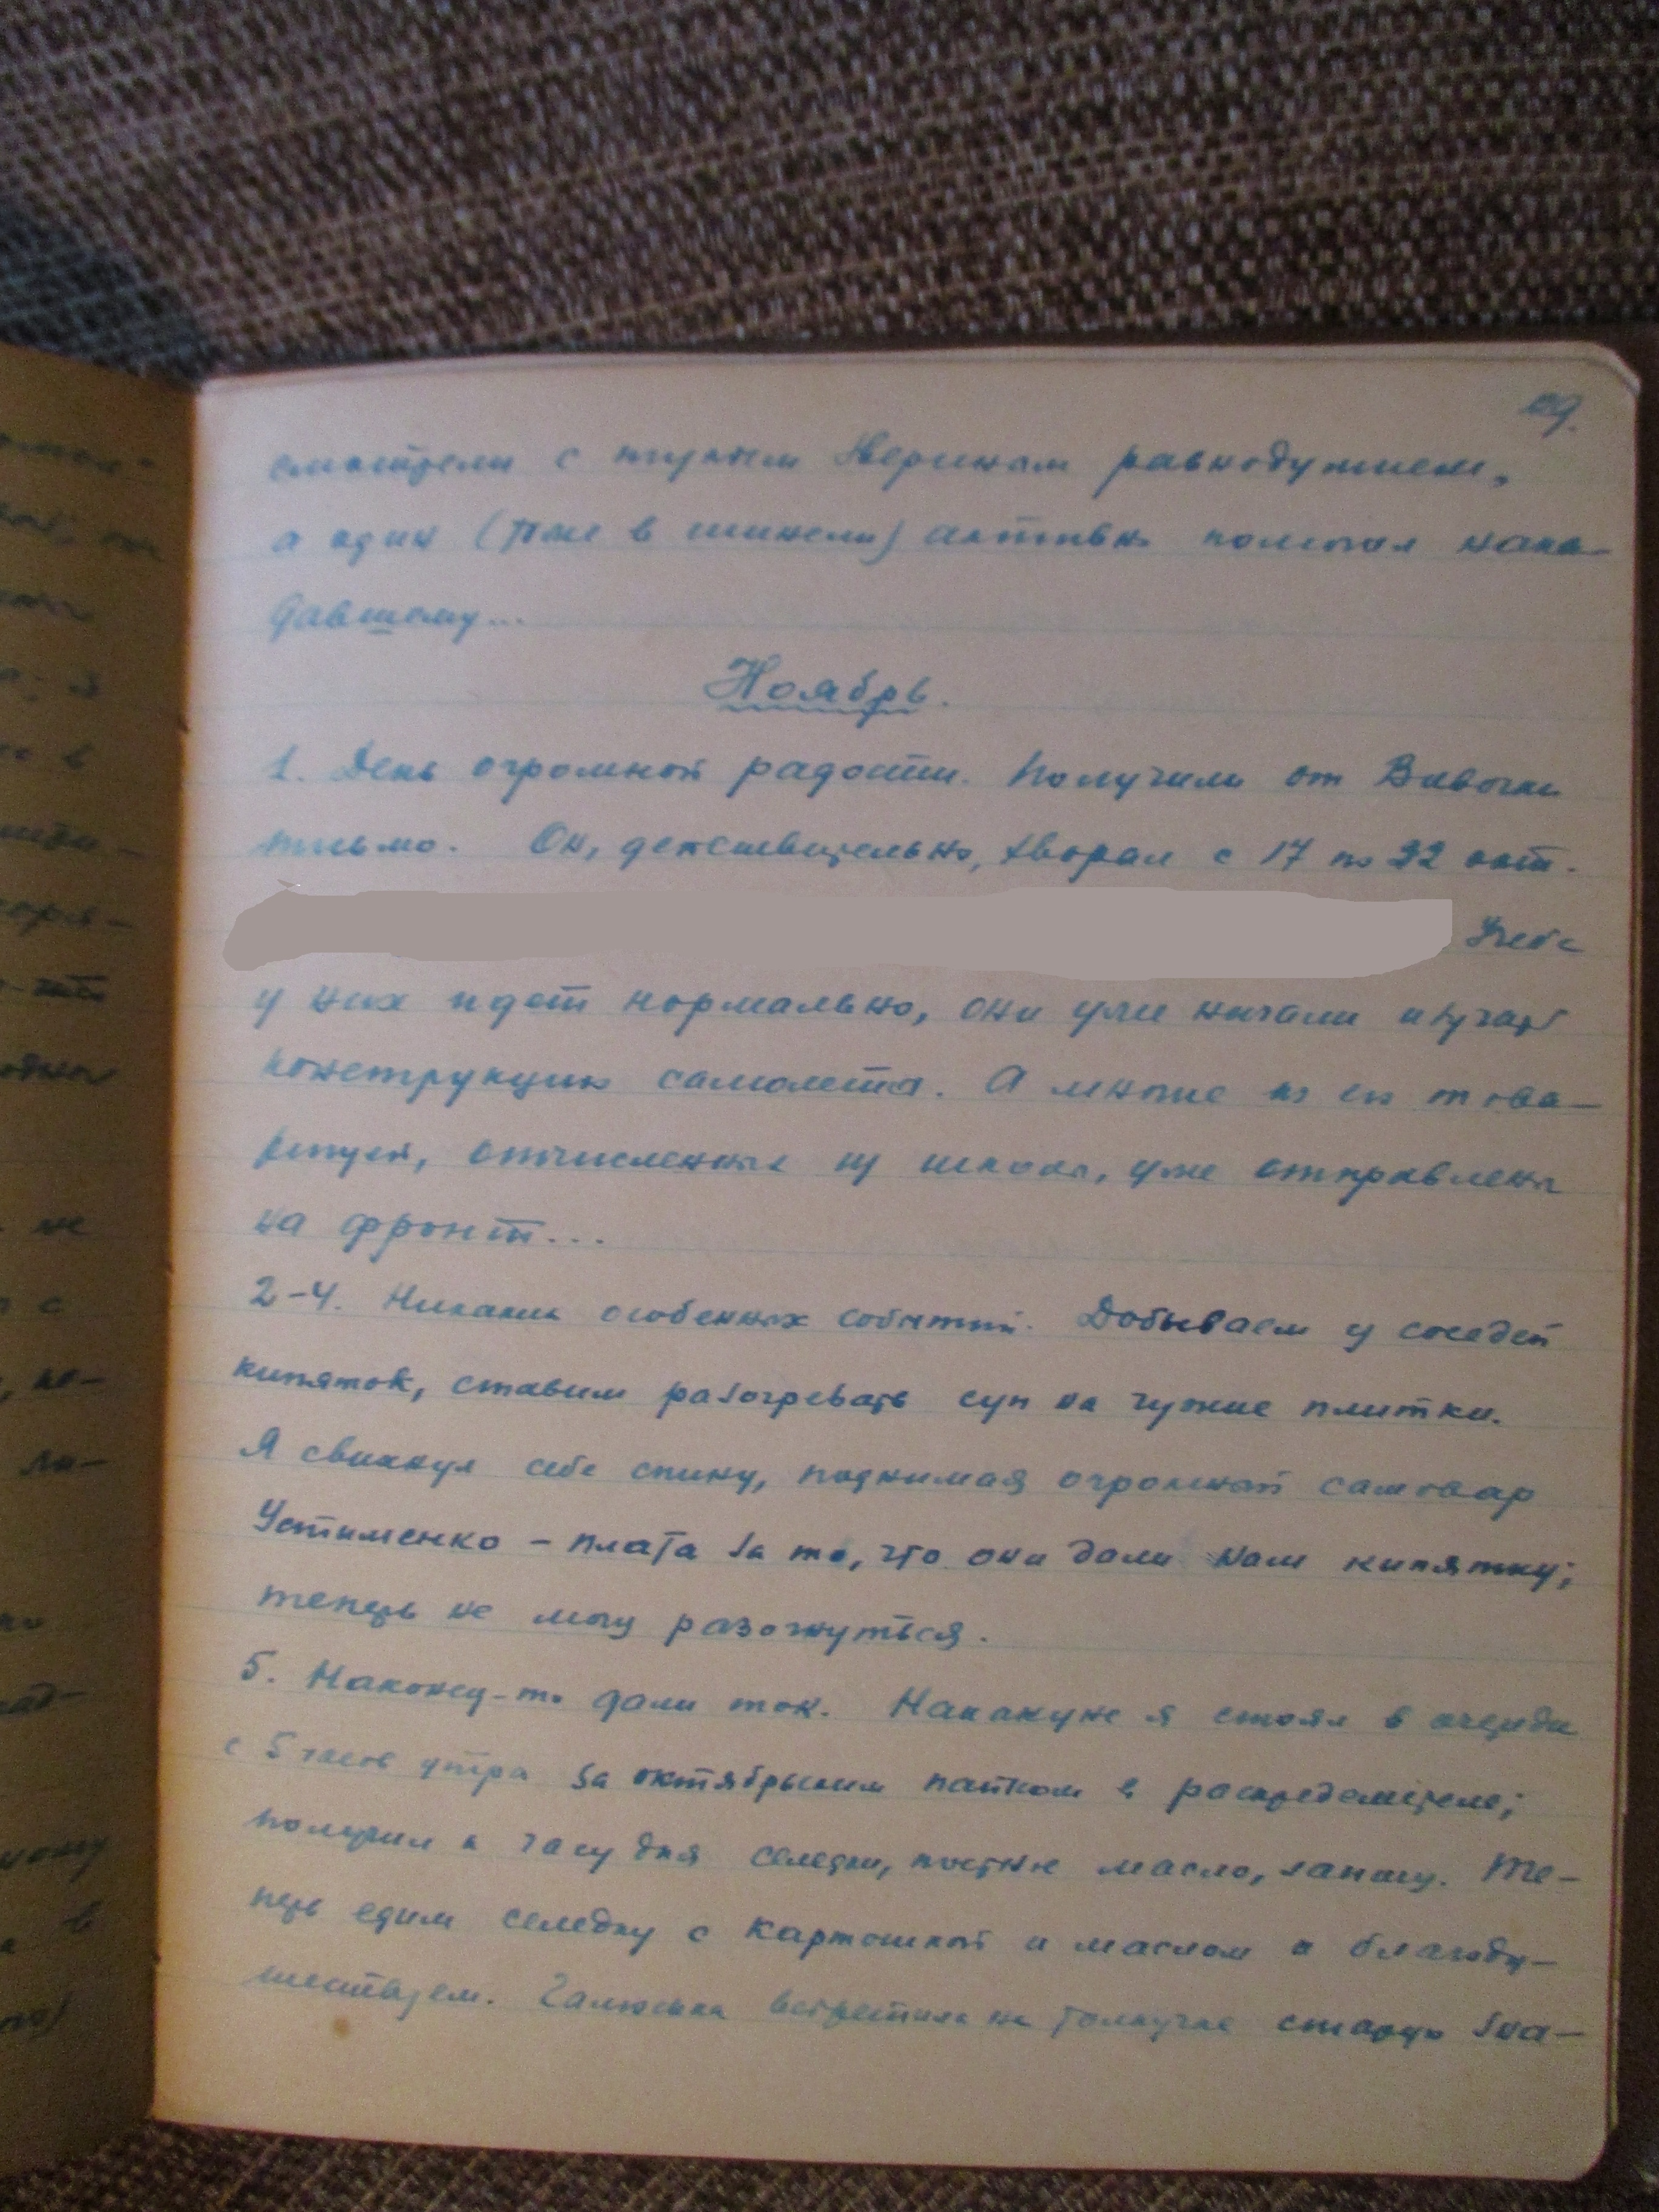 смотрели с тупым звериным равнодушием,
а один (тоже в шинели) активно помогал напа-
давшему...
Ноябрь.
1. День огромной радости. Получили от Вивочки
письмо. Он, действительно, хворал с 17 по 22 окт.
Учеба
у них идет нормально, они уже начали изучать
конструкцию самолета. А многие из их това-
рищей, отчисленные из школы, уже отправлены
на фронт...
2-4. Никаких особенных событий. Добываем у соседей
кипяток, ставим разогревать суп на чужие плитки.
Я свихнул себе спину, поднимая огромный самовар
Устименко – плата за то, что они дали нам кипятку;
теперь не могу разогнуться.
5. Наконец-то дали ток. Накануне я стоял в очереди
с 5 часов утра за октябрьским пайком в распределителе;
получил к часу дня селедки, постное масло, Те-
перь едим селедку с картошкой и маслом и благоду-
шествуем. Галюська встретила на толкучке старую зна-